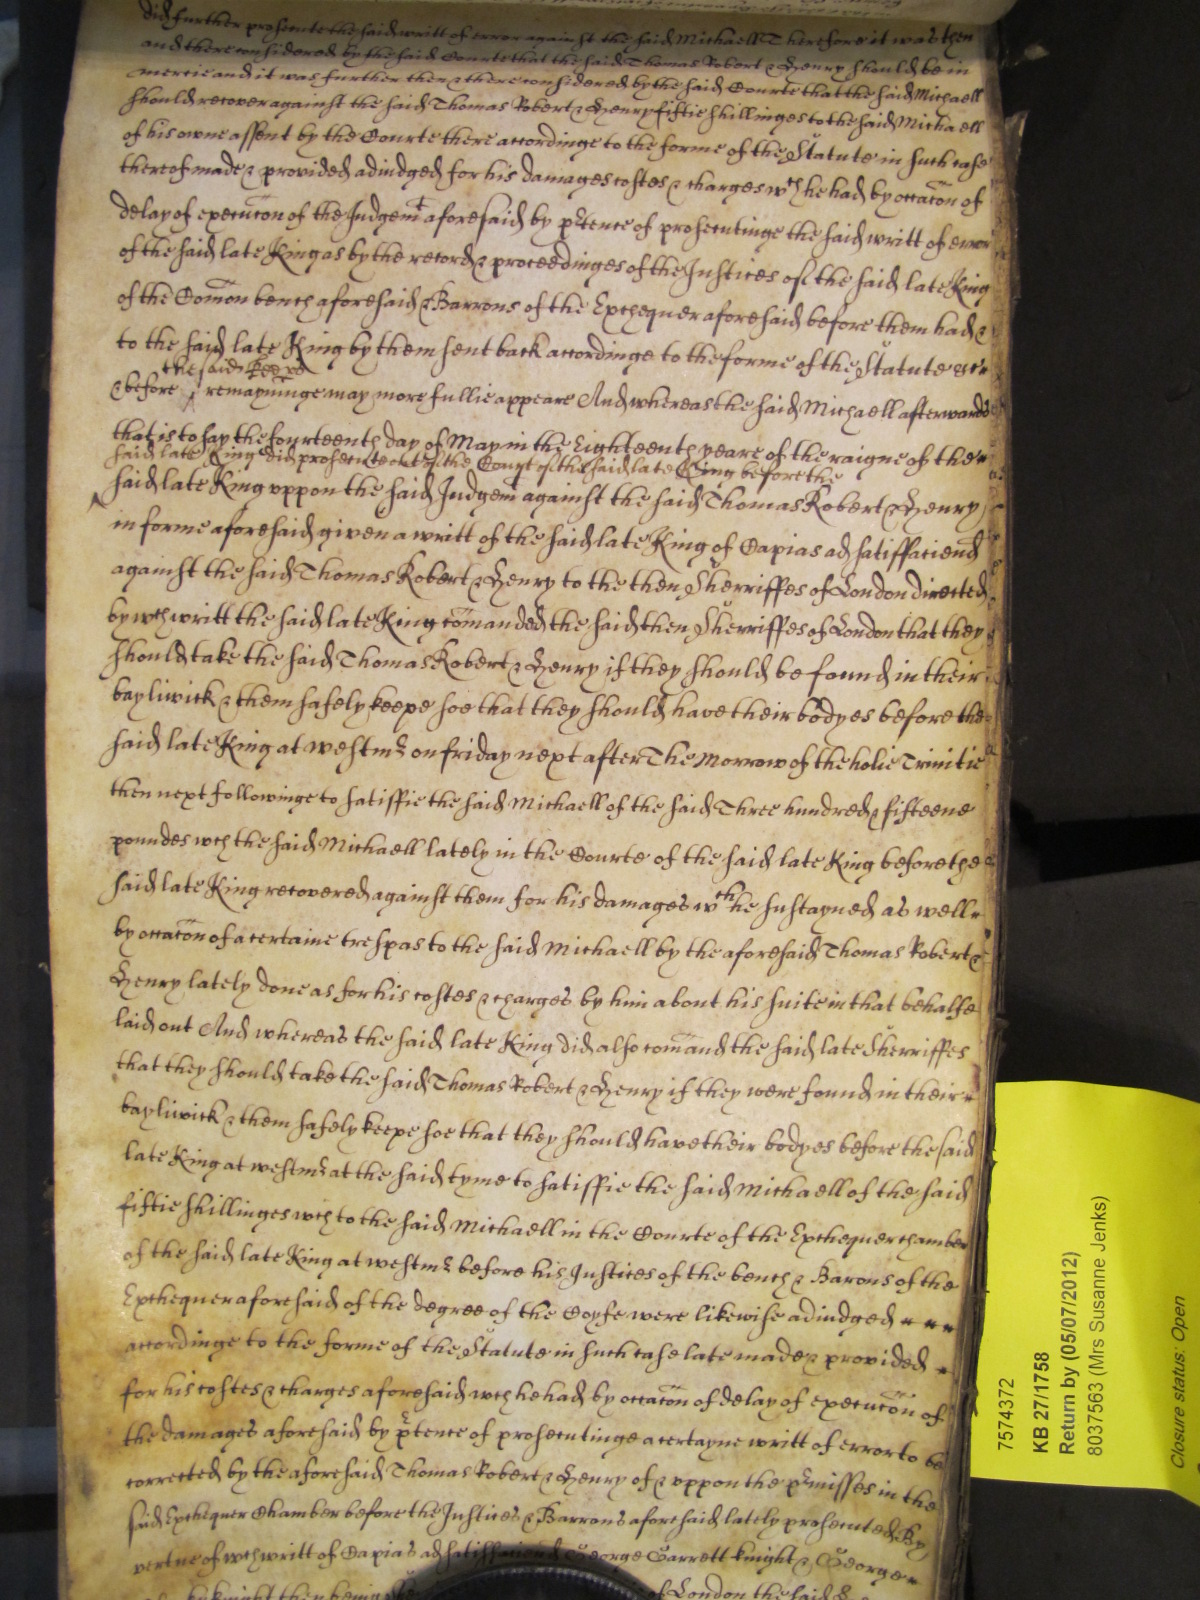 did further prosecute the said writt of error against the said Michaell Therefore it was then
and there considered by the said Courte that the said Thomas Robert & Henry should be in
mercie and it was further then & there considered by the said Courte that the said Michaell
should recover against the said Thomas Robert & Henry fiftie shillinges to the said Michaell
of his owne assent by the Courte there accordinge to the forme of the Statute in such case
thereof made & provided adiudged for his damages costes & charges wch he had by occacon of
delay of execucon of the Judgemt aforesaid by ptence of prosecutinge the said writt of error
of the said late King as by the record & proceedinges of the Justices of the said late King
of the Comon bench aforesaid & Barrons of the Exchequer aforesaid before them had &
to the said late King by them sent back accordinge to the forme of the Statute &c
the said
& before remayninge may more fullie appeare And whereas the said Michaell afterwards
that is to say the fourteenth day of May in the Eighteenth yeare of the raigne of the
said late King did prosecute out of the Court of the said late King before the
said late King uppon the said Judgemt against the said Thomas Robert & Henry
in forme aforesaid given a writt of the said late King of Capias ad satisfaciend
against the said Thomas Robert & Henry to the then Sherriffes of London directed
by wch writt the said late King comanded the said then Sherriffes of London that they
should take the said Thomas Robert & Henry if they should be found in their
bayliwick & them safely keepe soe that they should have their bodyes before the
said late King at westmr on friday next after The Morrow of the holie Trinitie
then next followinge to satiffie the said Michaell of the said Three hundred & fifteene
poundes wch the said Michaell lately in the Courte of the said late King before the
said late King recovered against them for his damages wch he sustayned as well
by occacon of a certaine trespas to the said Michaell by the aforesaid Thomas Robert &
Henry lately done as for his costes & charges by him about his suite in that behalfe
laid out And whereas the said late King did also comand the said late Sherriffes
that they should take the said Thomas Robert & Henry if they were found in their
bayliwick & them safely keepe soe that they should have their bodyes before the said
late King at westmr at the said tyme to satiffie the said Michaell of the said
fiftie shillinges wch to the said Michaell in the Courte of the Exchequer chamber
of the said late King at westmr before his Justices of the bench & Barons of the
Exchequer aforesaid of the degree of the Coyfe were likewise adiudged
accordinge to the forme of the Statute in such case late made & provided
for his costes & charges aforesaid wch he had by occacon of delay of execucon of
the damages aforesaid by ptence of prosecutinge a certayne writt of error to be
corrected by the aforesaid Thomas Robert & Henry of & uppon the pmisses in the
said Exchequer Chamber before the Justices & Barrons aforesaid lately prosecuted By
vertue of wch writt of Capias ad satisfaciend George Garrett knight & George
knight then being of London the said
7574372
KB 27/1758
Return by (05/07/2012)
8037563 (Mrs Susanne Jenks)
Closure status: Open